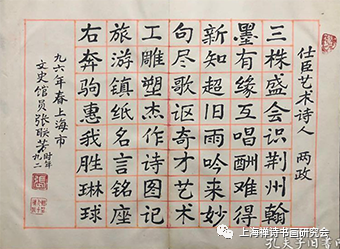 仕臣艺术诗人 两政
三株盛会识荆州翰
墨有缘互唱酬难得
新知超旧雨吟来妙
句尽歌讴奇才艺术
工雕塑杰作诗图记
旅游镇纸名言铭座
右奔驹惠我胜琳球
九六年春上海市
文史馆员张联 时年九二
上海禅诗书画研究会
孔夫子旧书网